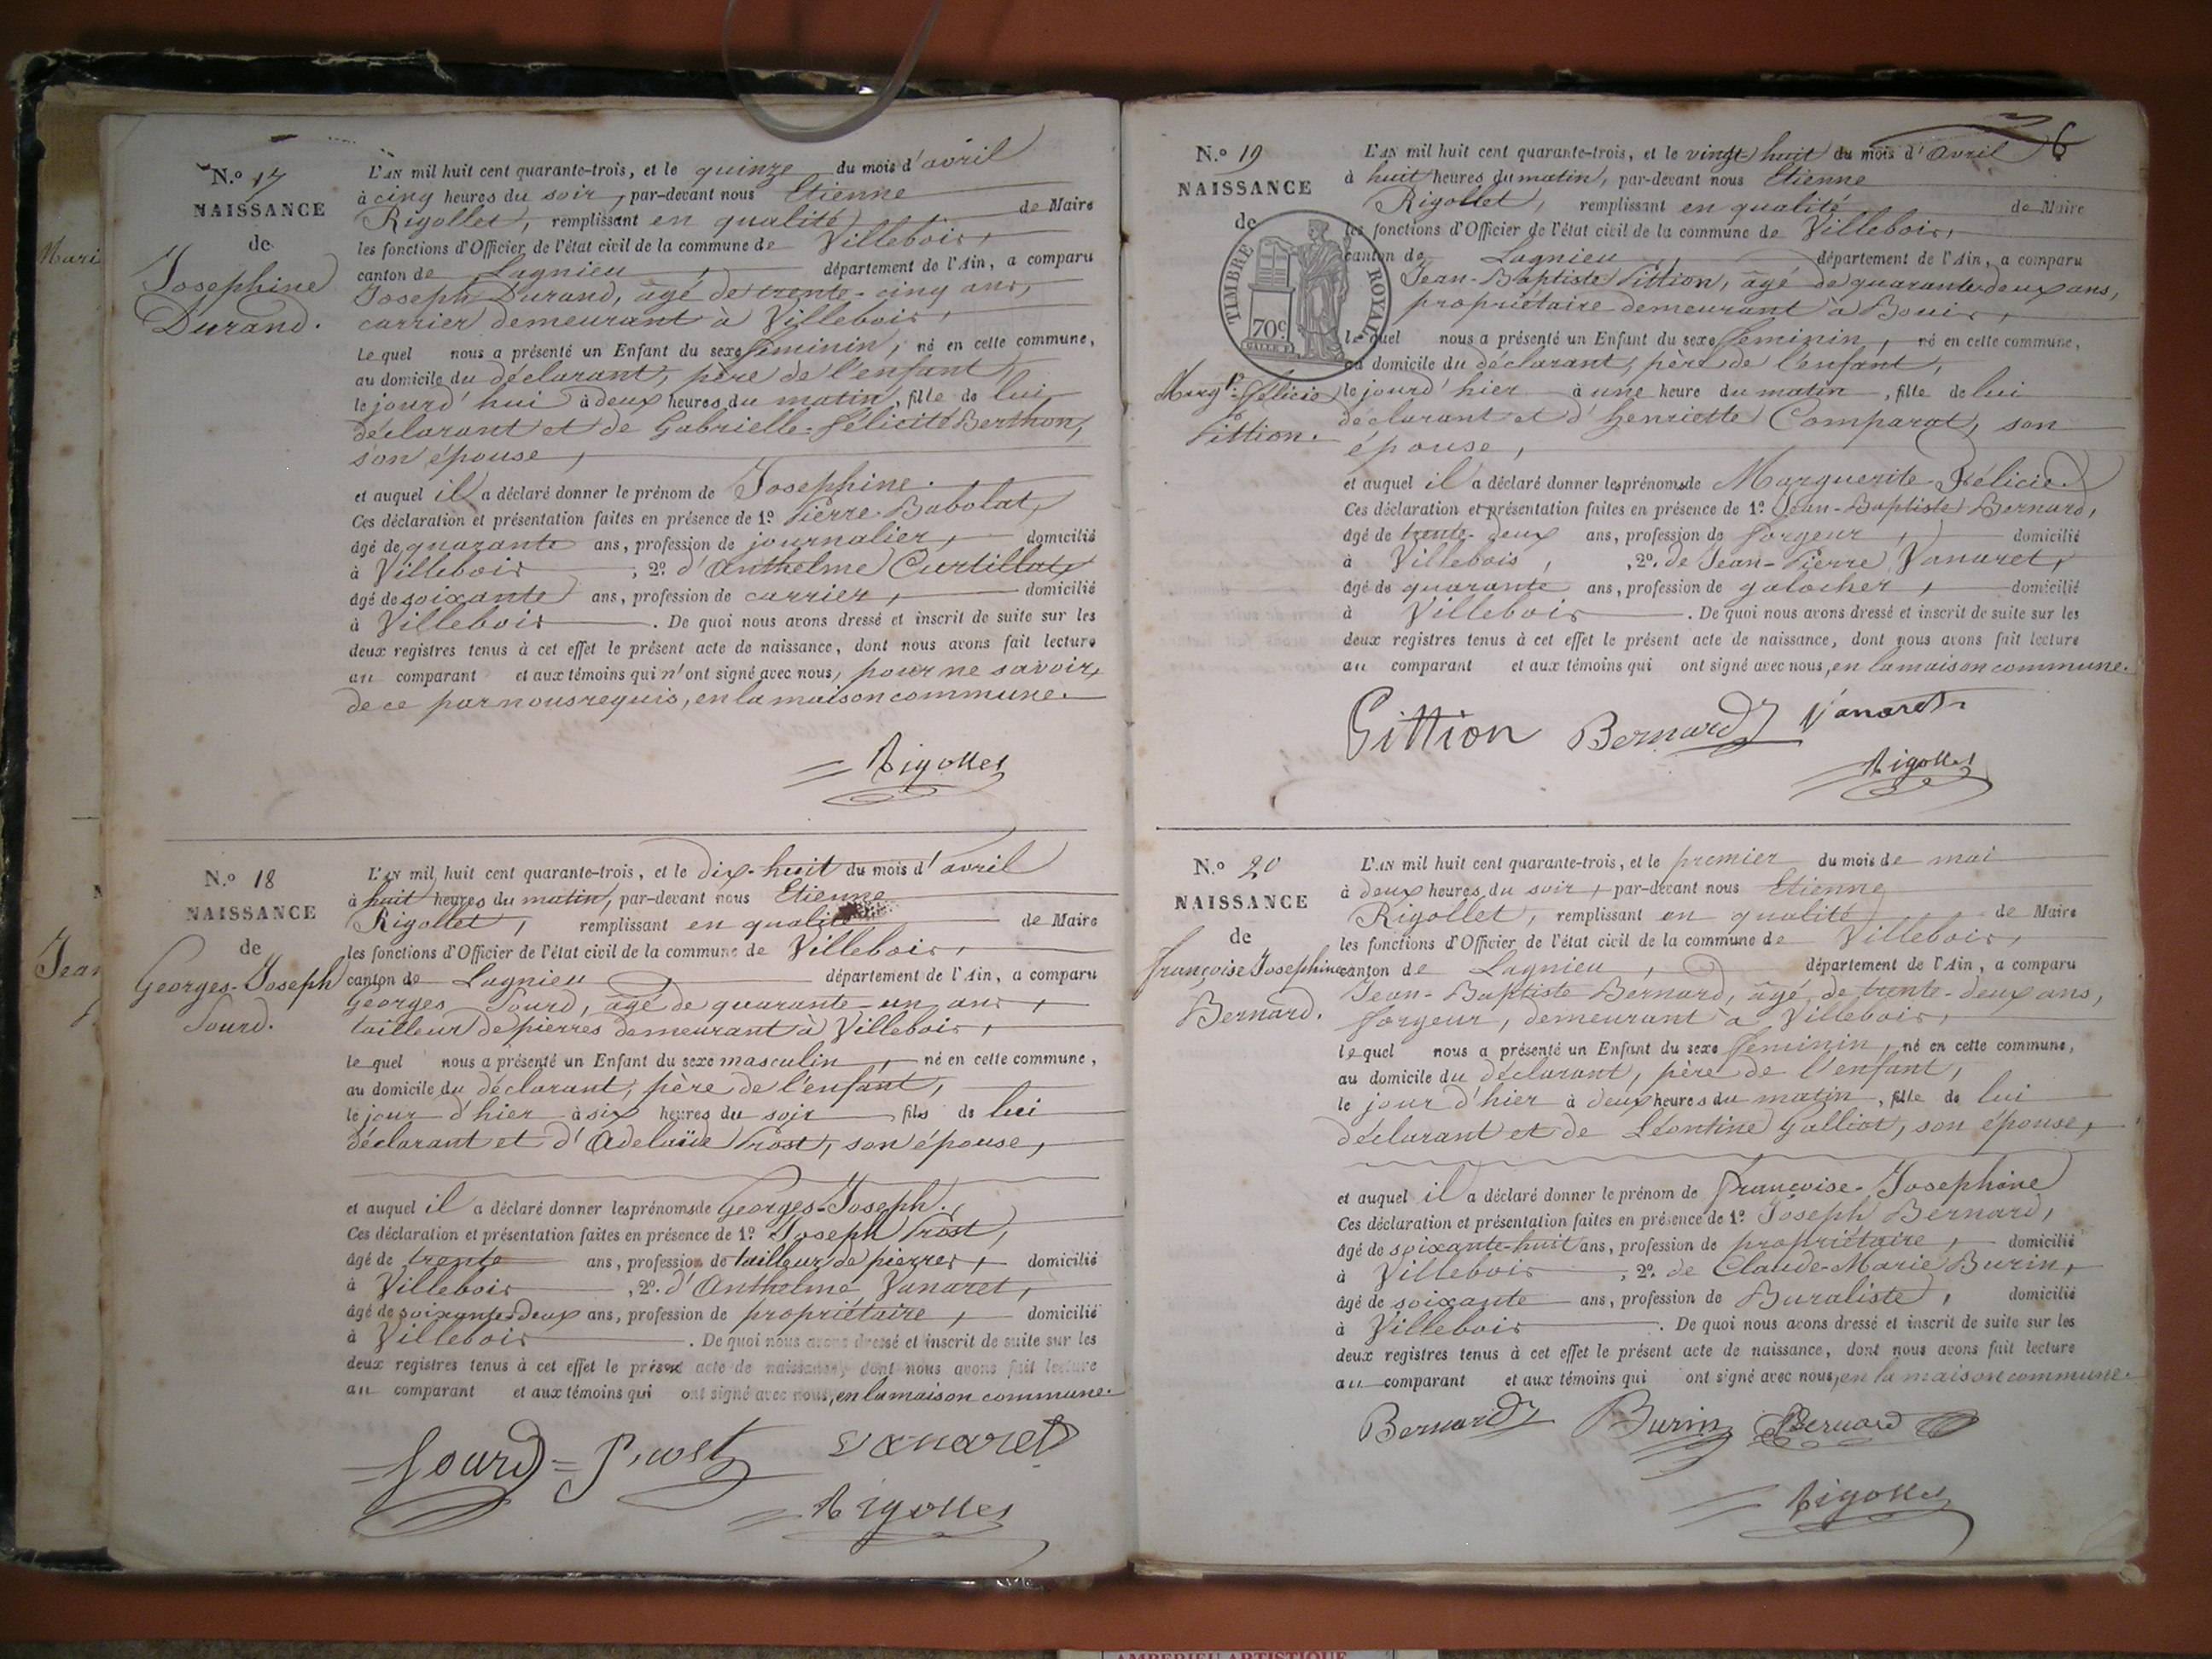 N.º 17
NAISSANCE
de
Josephine
Durand.
L'AN mil huit cent quarante-trois, et le quinze du mois d'avril
à cinq heures du soir, par-devant nous Etienne
Rigollet, remplissant en qualité de Maire
les fonctions d'Officier de l'état civil de la commune de Villebois,
canton de Lagnieu, département de l'Ain, a comparu
Joseph Durand, âgé de trente-cinq ans,
carrier demeurant à Villebois,
Lequel nous a présenté un Enfant du sexe féminin, né en cette commune,
au domicile du déclarant, père de l'enfant,
le jourd'hui à deux heures du matin, fille de lui
déclarant et de Gabrielle-Félicité Berthon,
son épouse,
et auquel il a déclaré donner le prénom de Josephine.
Ces déclaration et présentation faites en présence de 1º Pierre Babolat,
âgé de quarante ans, profession de journalier, domicilié
à Villebois ; 2º d'Anthelme Curtillat,
âgé de soixante ans, profession de carrier, domicilié
à Villebois. De quoi nous avons dressé et inscrit de suite sur les
deux registres tenus à cet effet le présent acte de naissance, dont nous avons fait lecture
au comparant et aux témoins qui n'ont signé avec nous, pour ne savoir,
de ce par nous requis, en la maison commune.
Rigollet
N.º 18
NAISSANCE
de
Georges-Joseph
Sourd.
L'AN mil huit cent quarante-trois, et le dix-huit du mois d'avril
à huit heures du matin, par-devant nous Etienne
Rigollet, remplissant en qualité de Maire
les fonctions d'Officier de l'état civil de la commune de Villebois,
canton de Lagnieu, département de l'Ain, a comparu
Georges Sourd, âgé de quarante-un ans,
tailleur de pierres demeurant à Villebois,
lequel nous a présenté un Enfant du sexe masculin, né en cette commune,
au domicile du déclarant, père de l'enfant,
le jour d'hier à six heures du soir fils de lui
déclarant et d'Adelaïde Prost, son épouse,
et auquel il a déclaré donner les prénoms de Georges-Joseph.
Ces déclaration et présentation faites en présence de 1º Joseph Prost,
âgé de trente ans, profession de tailleur de pierres, domicilié
à Villebois, 2º d'Anthelme Vanaret,
âgé de soixante-deux ans, profession de propriétaire, domicilié
à Villebois. De quoi nous avons dressé et inscrit de suite sur les
deux registres tenus à cet effet le présent acte de naissance, dont nous avons fait lecture
au comparant et aux témoins qui ont signé avec nous, en la maison commune.
Sourd Prost Vanaret
Rigollet
6
N.º 19
NAISSANCE
de
TIMBRE ROYAL
70c
Margte-Félicie
Pittion.
L'AN mil huit cent quarante-trois, et le vingt-huit du mois d'Avril
à huit heures du matin, par-devant nous Etienne
Rigollet, remplissant en qualité de Maire
les fonctions d'Officier de l'état civil de la commune de Villebois,
canton de Lagnieu, département de l'Ain, a comparu
Jean-Baptiste Pittion, âgé de quarante-deux ans,
propriétaire demeurant à Bouis,
lequel nous a présenté un Enfant du sexe féminin, né en cette commune,
au domicile du déclarant, père de l'enfant,
le jourd'hier à une heure du matin, fille de lui
déclarant et d'henriette Comparat, son
épouse,
et auquel il a déclaré donner les prénoms de Marguerite-Félicie.
Ces déclaration et présentation faites en présence de 1º Jean-Baptiste Bernard,
âgé de trente-deux ans, profession de forgeur, domicilié
à Villebois, 2º. de Jean-Pierre Vanaret,
âgé de quarante ans, profession de galocher, domicilié
à Villebois. De quoi nous avons dressé et inscrit de suite sur les
deux registres tenus à cet effet le présent acte de naissance, dont nous avons fait lecture
au comparant et aux témoins qui ont signé avec nous, en la maison commune.
Pittion Bernard Vanaret
Rigollet
N.º 20
NAISSANCE
de
françoise Josephine
Bernard.
L'AN mil huit cent quarante-trois, et le premier du mois de mai
à deux heures du soir, par-devant nous Etienne
Rigollet, remplissant en qualité de Maire
les fonctions d'Officier de l'état civil de la commune de Villebois,
canton de Lagnieu, département de l'Ain, a comparu
Jean-Baptiste Bernard, âgé de trente-deux ans,
forgeur, demeurant à Villebois,
lequel nous a présenté un Enfant du sexe féminin, né en cette commune,
au domicile du déclarant, père de l'enfant,
le jour d'hier à deux heures du matin, fille de lui
déclarant et de Léontine Galliot, son épouse,
et auquel il a déclaré donner le prénom de françoise-Josephine
Ces déclaration et présentation faites en présence de 1º Joseph Bernard,
âgé de soixante-huit ans, profession de propriétaire, domicilié
à Villebois, 2º. de Claude-Marie Burin,
âgé de soixante ans, profession de Buraliste, domicilié
à Villebois. De quoi nous avons dressé et inscrit de suite sur les
deux registres tenus à cet effet le présent acte de naissance, dont nous avons fait lecture
au comparant et aux témoins qui ont signé avec nous, en la maison commune.
Bernard Burin Bernard
Rigollet